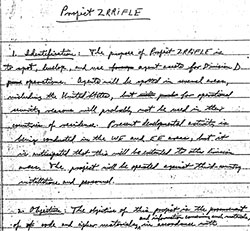 Project ZRRIFLE
1. Identification: The purpose of Project ZRRIFLE is
to spot, develop, and use foreign agent assets for Division D
operations. Agents will be spotted in several areas,
including the United States, but for operational
security reasons will probably not be used in their
countries of residence. Present developmental activity is
being conducted in the WE and EE areas, but it
is anticipated that this will be extended to other division
areas. The project will be operated against third-country
institutions and personnel.
2. Objective: The objective of this project is the procurement
of code and cipher materials, in accordance with